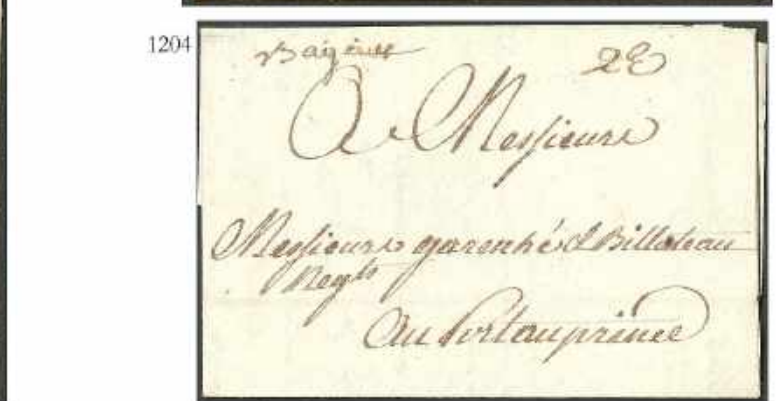 1204
Bayeux 28
A Messieurs
Messieurs garenché & Billoteau
Neg.ts
Au Port au prince